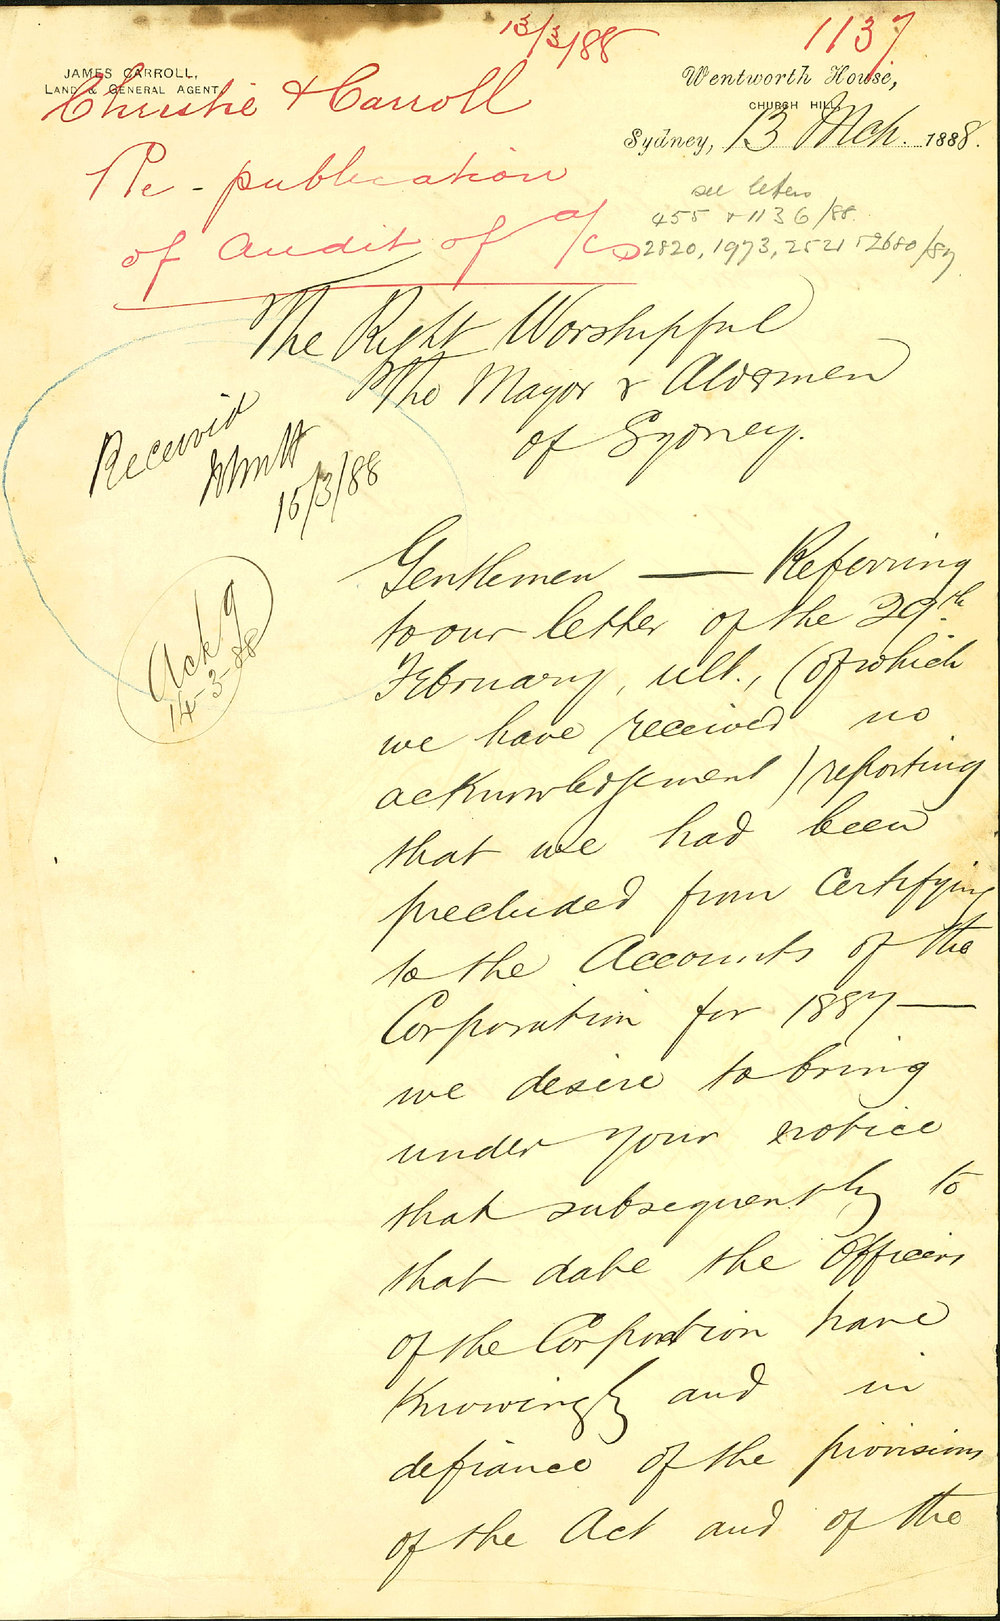 13/3/88
1137
JAMES CARROLL,
LAND & GENERAL AGENT
Christie & Carroll
Wentworth House,
CHURCH HILL,
Sydney, 13 Mch. 1888.
Re - publication
of Audit of a/cs
see letters
455 & 1136/88.
2820, 1973, 2521 & 2680/87
The Right Worshipful
The Mayor & Aldermen
of Sydney.
Received
15/3/88
Ackg
14-3-88
Gentlemen — Referring
to our letter of the 29th
February, ult., (of which
we have received no
acknowledgement) reporting
that we had been
precluded from Certifying
to the Accounts of the
Corporation for 1887 —
we desire to bring
under your notice
that subsequently to
that date the Officers
of the Corporation have
Knowingly and in
defiance of the provisions
of the Act and of the